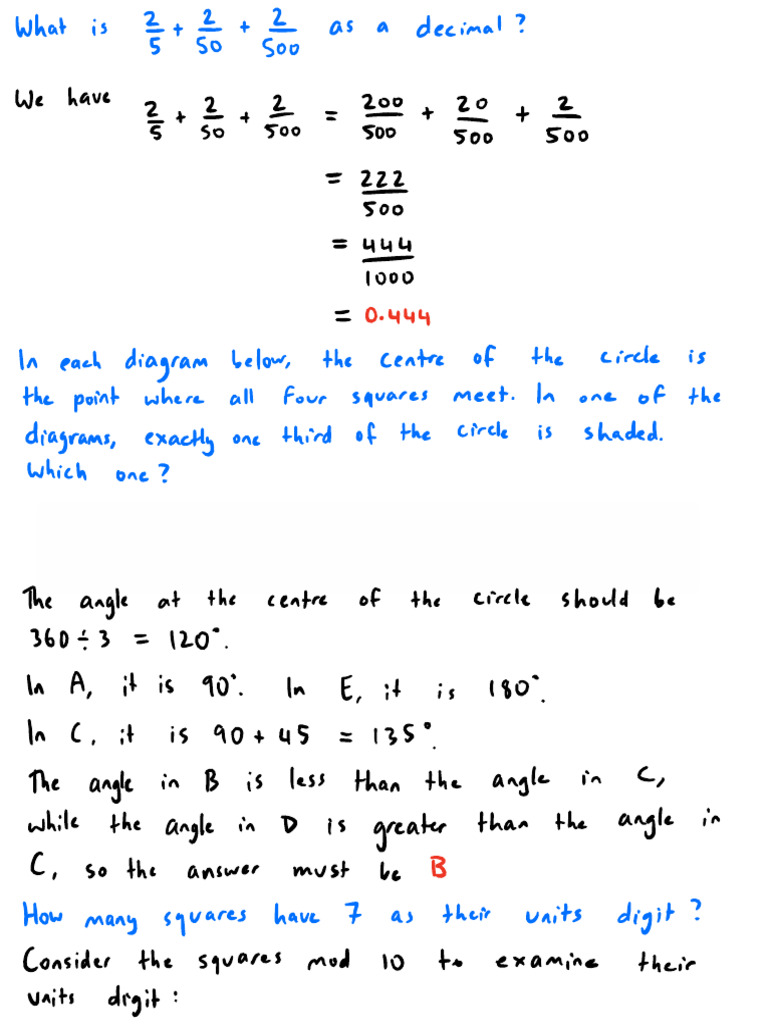 What is 2/5 + 2/50 + 2/500 as a decimal?
We have 2/5 + 2/50 + 2/500 = 200/500 + 20/500 + 2/500
= 222/500
= 444/1000
= 0.444
In each diagram below, the centre of the circle is
the point where all four squares meet. In one of the
diagrams, exactly one third of the circle is shaded.
Which one?
The angle at the centre of the circle should be
360÷3 = 120°.
In A, it is 90°. In E, it is 180°.
In C, it is 90 + 45 = 135°.
The angle in B is less than the angle in C,
while the angle in D is greater than the angle in
C, so the answer must be B
How many squares have 7 as their units digit?
Consider the squares mod 10 to examine their
units digit: